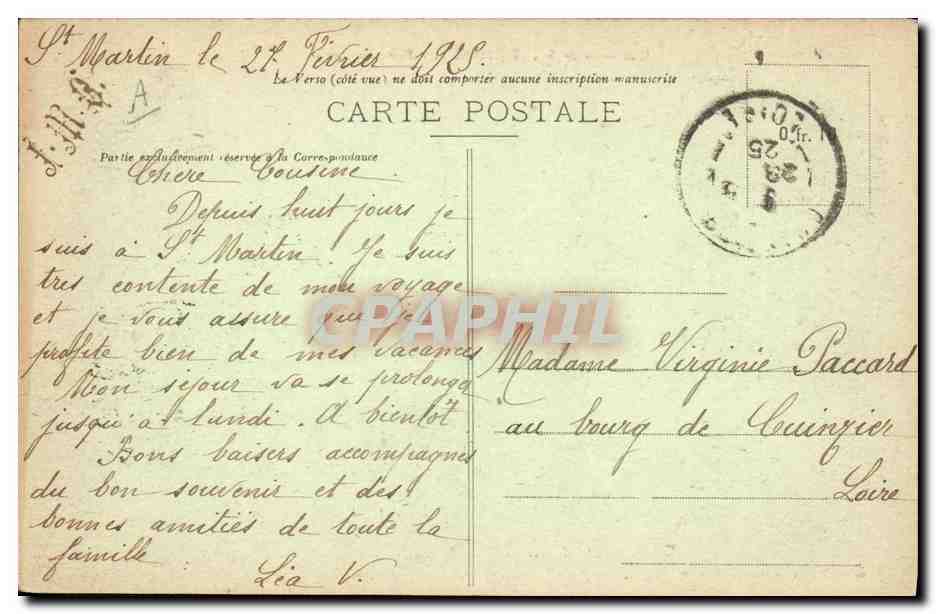 St Martin le 27 Février 1925.
Le Verso (côté vue) ne doit comporter aucune inscription manuscrite
J. M. B.
A
CARTE POSTALE
Partie exclusivement réservée à la Correspondance
0 fr. 10
25
Chère Cousine.
Depuis huit jours je
suis à St Martin. Je suis
tres contente de mon voyage
et je vous assure que je
profite bien de mes vacances
Mon séjour va se prolonger
jusqu'à lundi. A bientôt.
Bons baisers accompagnes
du bon souvenir et des
bonnes amitiés de toute la
famille
Léa V.
Madame Virginie Paccard
au bourg de Cuinzier
Loire
CPAPHIL